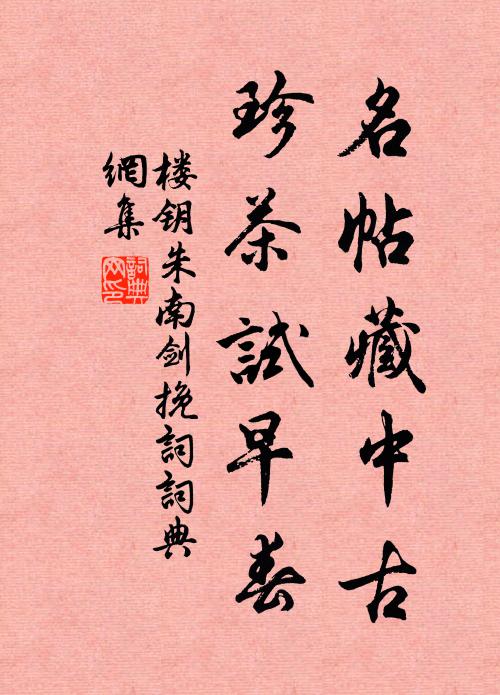 名帖藏中古
珍茶試早春
楼钥朱南剑挽詞詞典
網集
詞典
网印